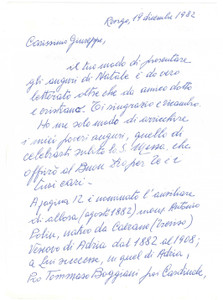 Rovigo, 19 dicembre 1982
Carissimo Giuseppe,
il tuo modo di presentare
gli auguri di Natale è da vero
letterato oltre che da amico dotto
e cristiano. Ti ringrazio e
Ho un solo modo di arricchire
i miei poveri auguri, quello di
celebrarti subito la S. Messa, che
offrirò al Buon Dio per te e i
tuoi cari.
A pagina 12 è nominato l'ausiliare
di allora (agosto 1882) mons. Antonio
Polin, nativo da (Treviso)
Vescovo di Adria dal 1882 al 1908;
a Lui successe, in quel di Adria,
Pio Tommaso Boggiani